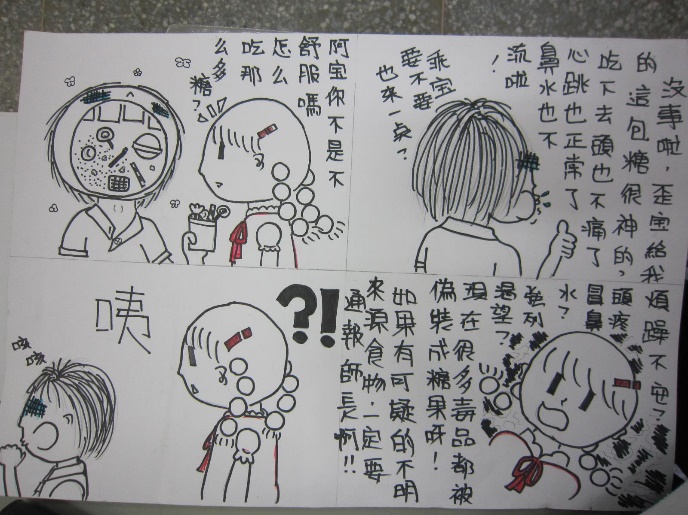 阿宝你不是不
舒服嗎
怎么
吃那
么多
糖?
沒事啦,歪宝給我
的這包糖很神的,
吃下去頭也不痛了
心跳也正常了
鼻水也不
流啦
!
乖宝
要不要
也來一桌?
咦
咳咳
?!
煩躁不安?
頭疼
冒鼻
水?
強列
渴望?
現在很多毒品都被
偽裝成糖果呀!
如果有可疑的不明
來源食物,一定要
通報師長啊!!